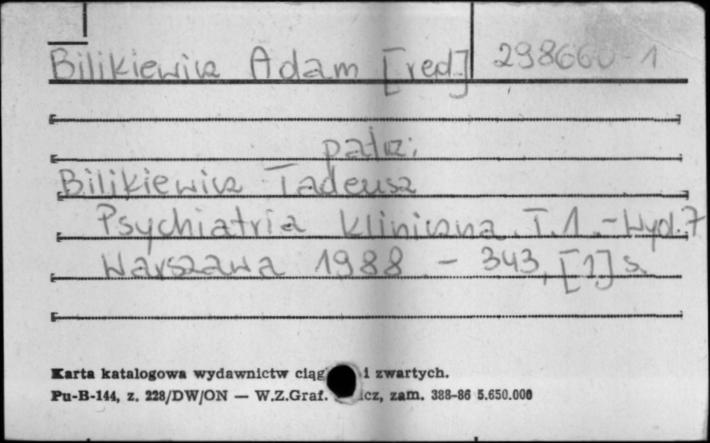 Bilikiewicz Adam [red.] 298660-1
patrz:
Bilikiewicz Tadeusz
Psychiatria kliniczna. T.1. - Wyd.7
Warszawa 1988 - 343, [1] s.
Karta katalogowa wydawnictw ciąg i zwartych.
Pu-B-144, z. 228/DW/ON — W.Z.Graf. icz, zam. 388-86 5.650.000